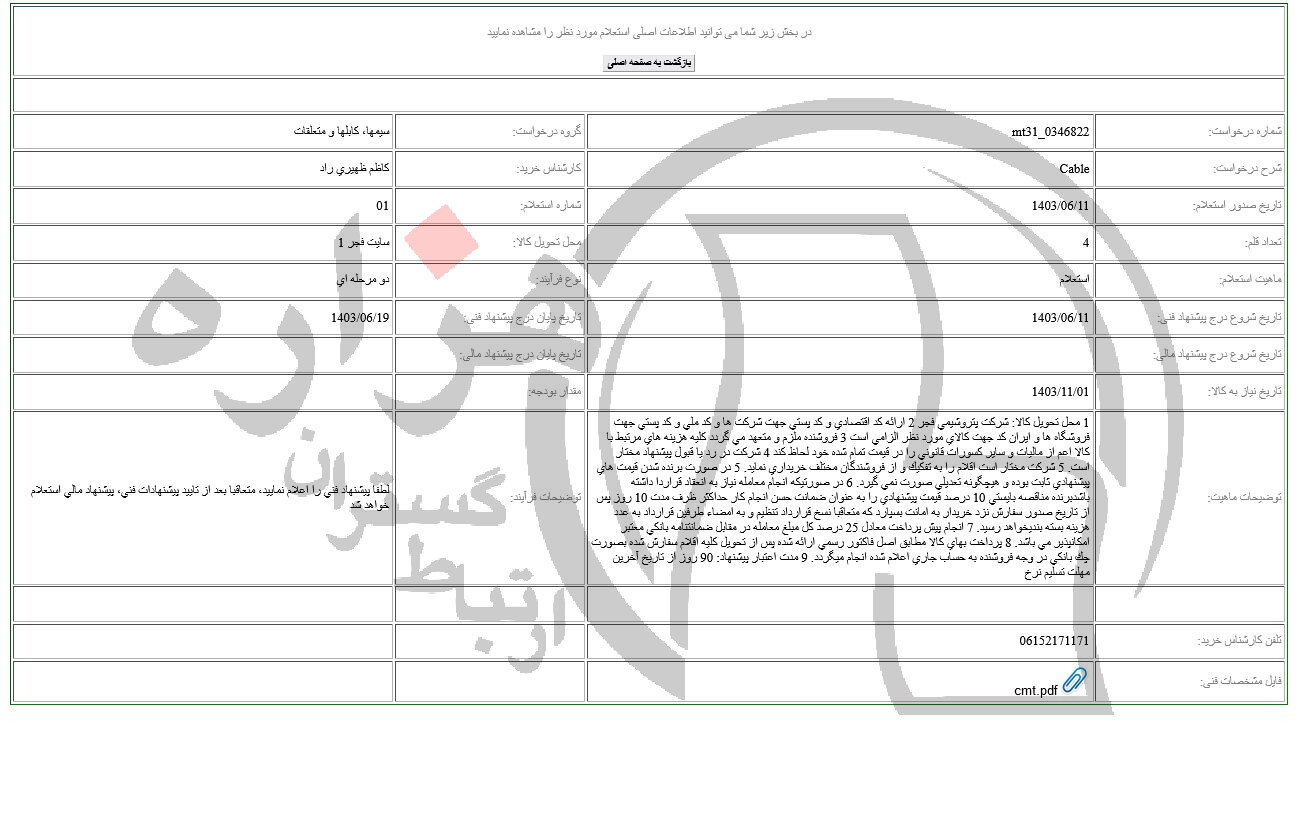 در بخش زیر شما می توانید اطلاعات اصلی استعلام مورد نظر را مشاهده نمایید
بازگشت به صفحه اصلی
شماره درخواست: mt31_0346822 گروه درخواست: سیمها، کابلها و متعلقات
شرح درخواست: Cable کارشناس خرید: کاظم ظهيري راد
تاریخ صدور استعلام: 1403/06/11 شماره استعلام: 01
تعداد قلم: 4 محل تحویل کالا: سایت فجر 1
ماهیت استعلام: استعلام نوع فرآیند: دو مرحله اي
تاریخ شروع درج پیشنهاد فنی: 1403/06/11 تاریخ پایان درج پیشنهاد فنی: 1403/06/19
تاریخ شروع درج پیشنهاد مالی: تاریخ پایان درج پیشنهاد مالی:
تاریخ نیاز به کالا: 1403/11/01 مقدار بودجه:
توضیحات ماهیت:
1 محل تحويل كالا: شركت پتروشيمي فجر 2 ارائه كد اقتصادي و كد پستي جهت شركت ها و كد ملي و كد پستي جهت
فروشگاه ها و ايران كد جهت كالاي مورد نظر الزامي است 3 فروشنده ملزم و متعهد مي گردد كليه هزينه هاي مرتبط با
كالا اعم از ماليات و ساير كسورات قانوني را در قيمت تمام شده خود لحاظ كند 4 شركت در رد يا قبول پيشنهاد مختار
است. 5 شركت مختار است اقلام را به تفكيك و از فروشندگان مختلف خريداري نمايد. 5 در صورت برنده شدن قيمت هاي
پيشنهادي ثابت بوده و هيچگونه تعديلي صورت نمي گيرد. 6 در صورتيكه انجام معامله نياز به انعقاد قراردا داشته
باشدبرنده مناقصه بايستي 10 درصد قيمت پيشنهادي را به عنوان ضمانت حسن انجام كار حداكثر ظرف مدت 10 روز پس
از تاريخ صدور سفارش نزد خريدار به امانت بسپارد كه متعاقبا نسخ قرارداد تنظيم و به امضاء طرفين قرارداد به عدد
هزينه بسته بنديخواهد رسيد. 7 انجام پيش پرداخت معادل 25 درصد كل مبلغ معامله در مقابل ضمانتنامه بانكي معتبر
امكانپذير مي باشد. 8 پرداخت بهاي كالا مطابق اصل فاكتور رسمي ارائه شده پس از تحويل كليه اقلام سفارش شده بصورت
چك بانكي در وجه فروشنده به حساب جاري اعلام شده انجام ميگردد. 9 مدت اعتبار پيشنهاد: 90 روز از تاريخ آخرين
مهلت تسليم نرخ
توضیحات فرآیند:
لطفا پيشنهاد فني را اعلام نماييد، متعاقبا بعد از تاييد پيشنهادات فني، پيشنهاد مالي استعلام
خواهد شد
تلفن کارشناس خرید: 06152171171
فایل مشخصات فنی: cmt.pdf
هزاره
گستران
ارتباط